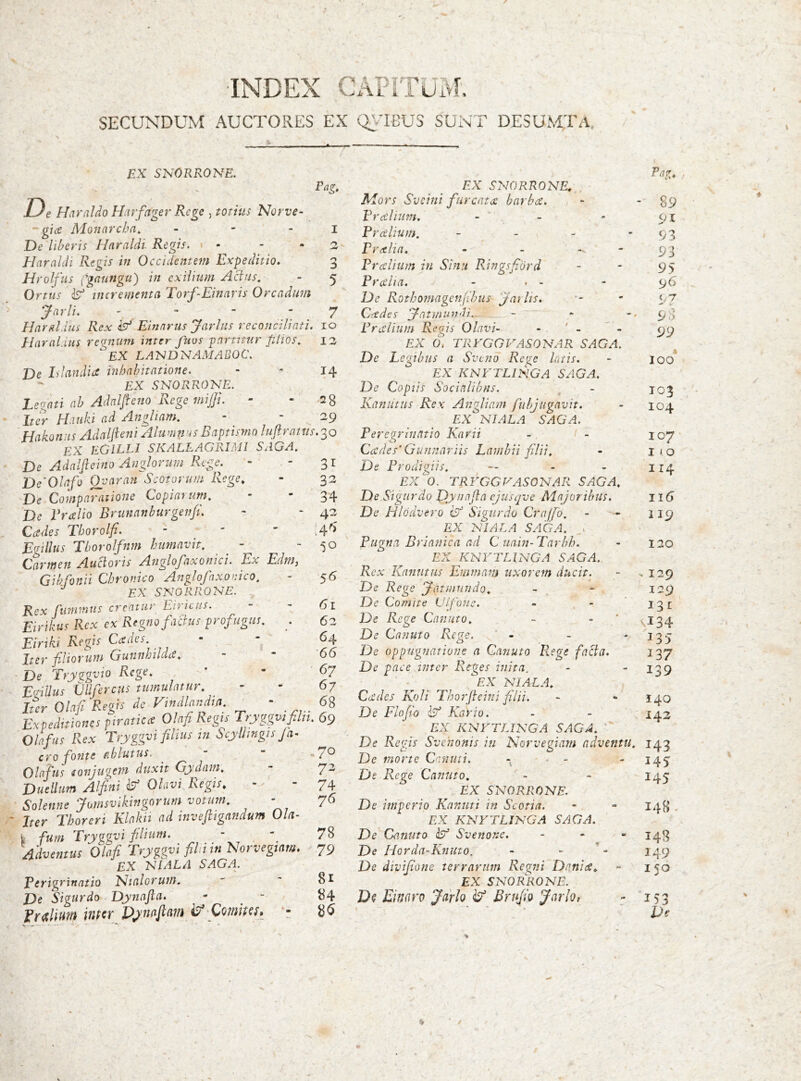 INDEX CAPITUM.
SECUNDUM AUCTORES EX QVIBUS SUNT DESUMTA.
EX SNORRONE.
Pag.
De Haraldo Harfager Rege, totius Norve-
giæ Monarcha. - - - 1
De liberis Haraldi Regis. - - - 2
Haraldi Regis in Occidentem Expeditio. 3
Hrolfus (gaungu) in exilium Actus. - 5
Ortus & incrementa Torf-Einaris Orcadum
Jarli. - - - - 7
Haraldus Rex & Einarus Jarlus reconciliati. 10
Haraldus regnum inter suos partitur filios. 12
EX LANDNAMABOC.
De Islandiæ inhabitatione. - - 14
EX SNORRONE.
Legati ab Adalsteno Rege missi. - - 28
Iter Hauki ad Angliam. - - 29
Hakonus Adalsteni Alumnus Baptismo lustratus. 30
EX EGILLI SKALLAGRIMI SAGA.
De Adalsteino Anglorum Rege. - - 31
De Olafo Qvaran Scotorum Rege. - 32
De Comparatione Copiarum. - - 34
De Prælio Brunanburgensi. - - 42
Cædes Thorolfi. - - - 46
Egillus Thorolfum humavit. - - 50
Carmen Auctoris Anglosaxonici. Ex Edm,
Gibsonii Chronico Anglosaxonico. - 56
EX SNORRONE.
Rex summus creatur Eiricus. - - 61
Eirikus Rex ex Regno factus profugus. . 62
Eiriki Regis Cædes. - - 64
Iter filiorum Gunnhildæ. - - 66
De Tryggvio Rege. - - 67
Egillus Ullsercus tumulatur. - - 67
Iter Olafi Regis de Vindlandia. - 68
Expeditiones piraticæ Olafi Regis Tryggvi filii. 69
Olafus Rex Tryggvi filius in Scyllingis sa-
cro fonte ablutus. - - - 70
Olafus conjugem duxit Gydam. - 72
Duellum Alfini & Olavi Regis. - - 74
Solenne Jomsvikingorum votum. - 76
Iter Thoreri Klakii ad investigandum Ola-
fum Tryggvi filium. - - 78
Adventus Olafi Tryggvi filii in Norvegiam. 79
EX NIALA SAGA.
Perigrinatio Nialorum. - 81
De Sigurdo Dynasta. - - 84
Prælium inter Dynastam & Comites. - 86
Pag.
EX SNORRONE.
Mors Sveini furcatæ barbæ. - - 89
Prælium. - - - 91
Prælium. - - - - 93
Prælia. - - - - 93
Prælium in Sinu Ringsfiörd - - 95
Prælia. - - - 96
De Rothomagensibus Jarlis. - - 97
Cædes Jatmundi. - - - 98
Prælium Regis Olavi- - - - 99
EX O. TRYGGVASONAR SAGA.
De Legibus a Sveno Rege latis. - 100
EX KNYTLINGA SAGA.
De Copiis Socialibus. - 103
Kanutus Rex Angliam subjugavit. - 104
EX NIALA SAGA.
Peregrinatio Karii - - 107
Cædes Gunnariis Lambii filii. - 110
De Prodigiis. - - - 114
EX O. TRYGGVASONAR SAGA.
De Sigurdo Dynasta ejusqve Majoribus. 116
De Hlödvero & Sigurdo Crasso. - - 119
EX NIALA SAGA.
Pugna Brianica ad Cuain-Tarbh. - 120
EX KNYTLINGA SAGA.
Rex Kanutus Emmam uxorem ducit. - 129
De Rege Jatmundo. - - 129
De Comite Ulfone. - - 131
De Rege Canuto. - - 134
De Canuto Rege. - - - 135
De oppugnatione a Canuto Rege facta. 137
De pace inter Reges inita. - - 139
EX NIALA.
Cædes Koli Thorsteini filii. - - 140
De Flosio & Kario. - - 142
EX KNYTLINGA SAGA.
De Regis Svenonis in Norvegiam adventu. 143
De morte Canuti. - - - - 145
De Rege Canuto. - - 145
EX SNORRONE.
De imperio Kanuti in Scotia. - - 148
EX KNYTLINGA SAGA.
De Canuto & Svenone. - - - 148
De Horda-Knuto. - - - 149
De divisione terrarum Regni Daniæ. - 150
EX SNORRONE.
De Einaro Jarlo & Brusio Jarlo, - 153
De